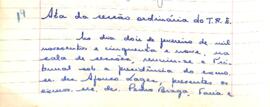 19
Ata da sessão ordinária do T.R.E.
No dia dois de fevereiro de mil
novecentos e cinquenta e nove, na
sala de sessões, reuniu-se o Tri-
bunal sob a presidência do exmo.
sr. des. Afonso Lages, presentes os
exmos. srs. drs. Pedro Braga, Faria e